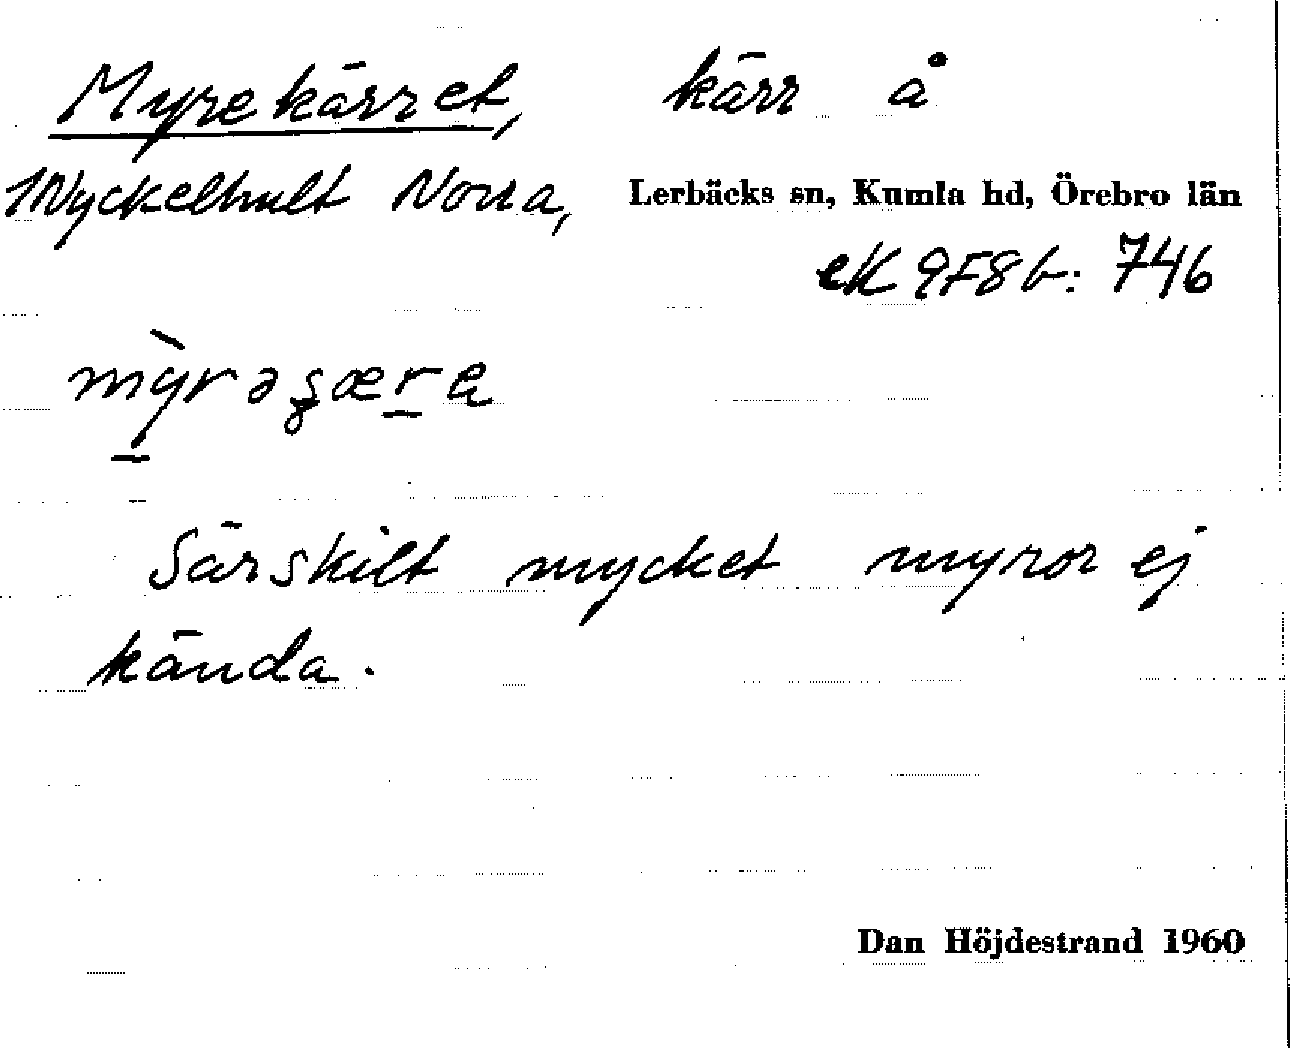 Myrekärret, kärr å
Myckelhult Norra, Lerbäcks sn, Kumla hd, Örebro län
eK 9F8b: 746
mỳrəʂæra
Särskilt mycket myror ej
kända.
Dan Höjdestrand 1960